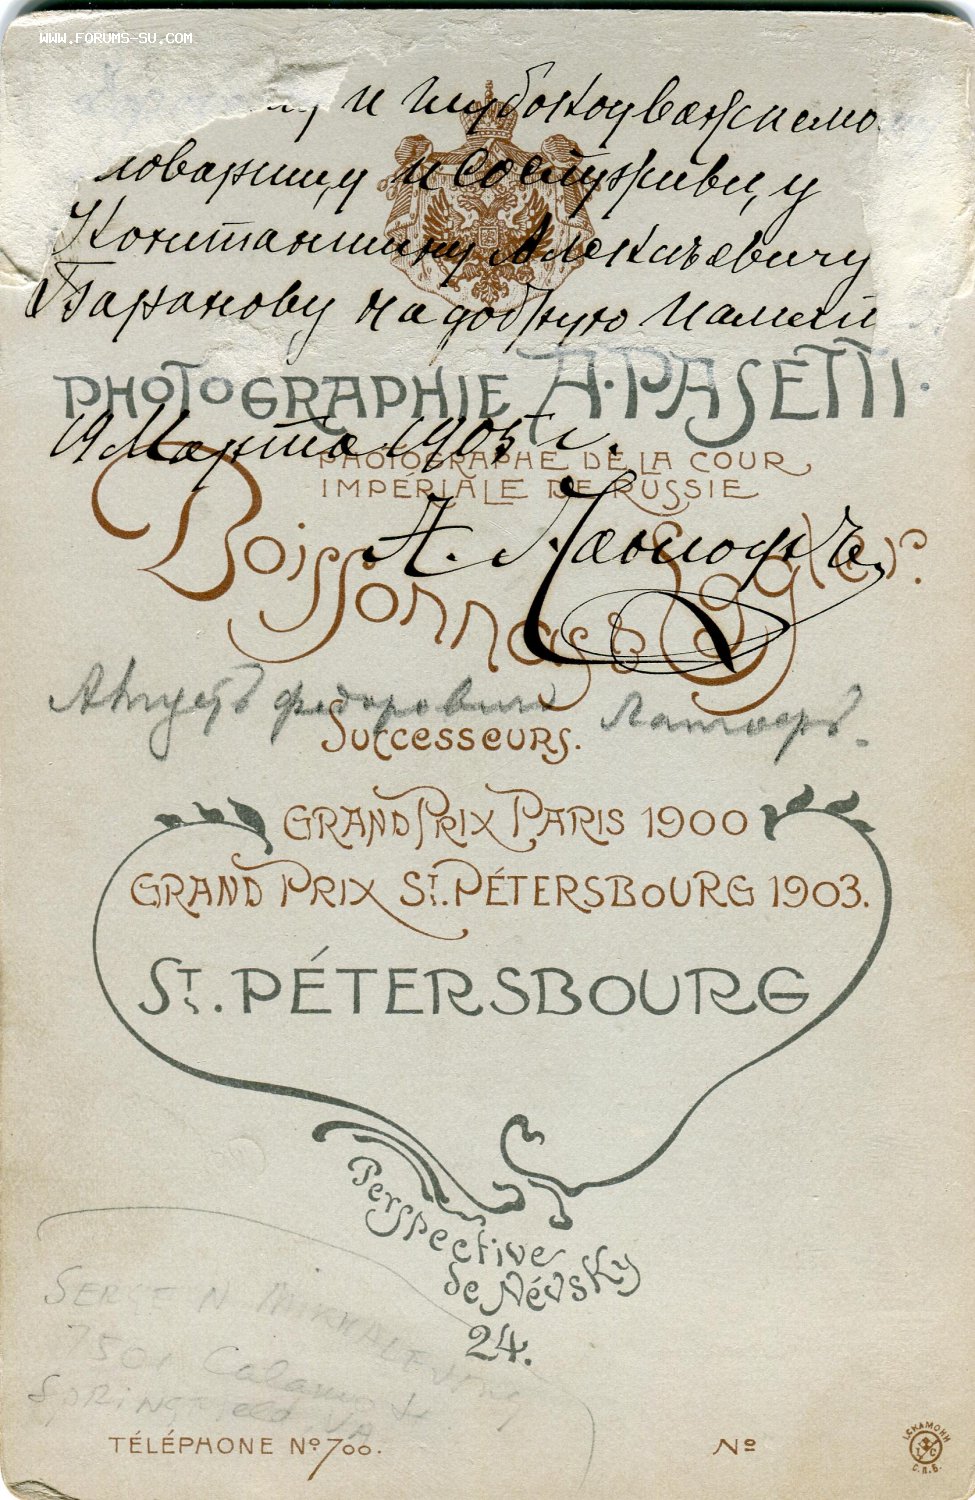 WWW.FORUMS-SU.COM
и глубокоуважаемо
товарищу и сослуживцу
Константину Алексѣевичу
Баранову на добрую память
PHOTOGRAPHIE A. PASETTI.
19 Марта 1905 г.
PHOTOGRAPHE DE LA COUR
IMPÉRIALE DE RUSSIE
Boissonnas & Eggler.
А.
Августъ Федоровичъ
SUCCESSEURS.
GRAND PRIX PARIS 1900
GRAND PRIX ST. PÉTERSBOURG 1903.
ST. PÉTERSBOURG
Perspective
de Névsky
24.
SERGE N. MIKHALEVSKY
Springfield VA
TÉLÉPHONE No 700.
No
С.П.Б.